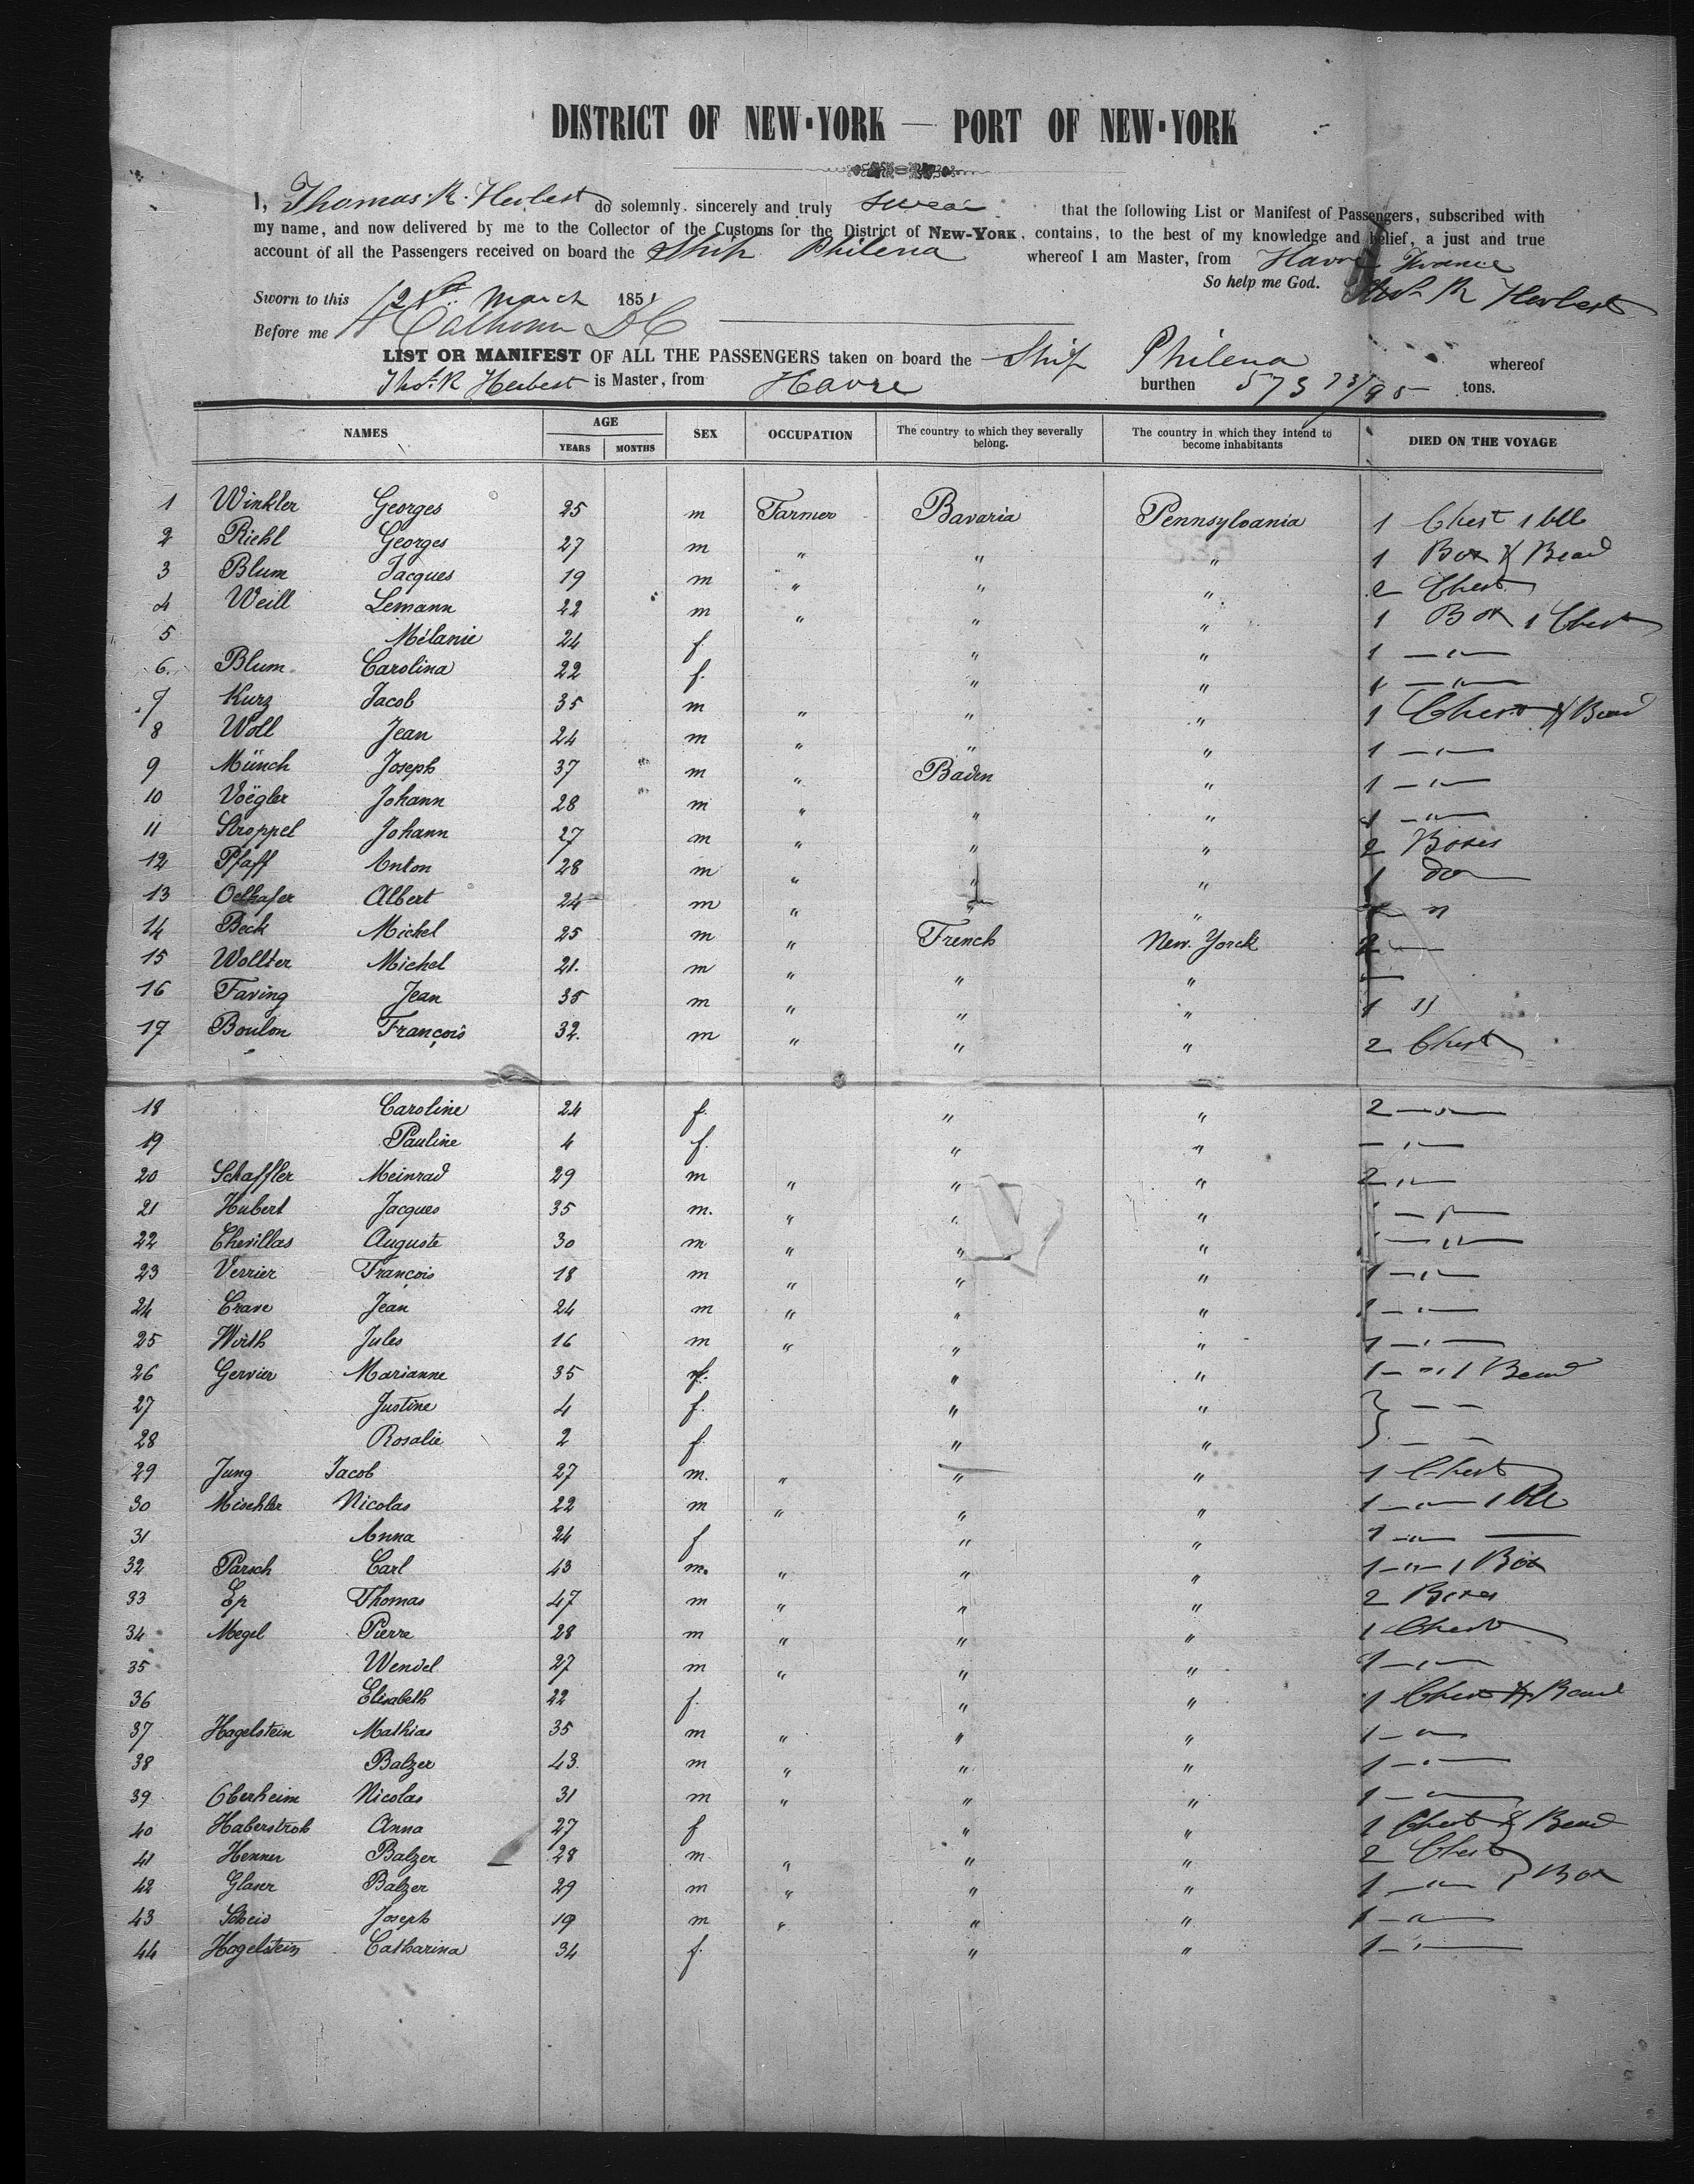 DISTRICT OF NEW-YORK — PORT OF NEW-YORK
I, Thomas R. Herbest do solemnly, sincerely and truly swear that the following List or Manifest of Passengers, subscribed with
my name, and now delivered by me to the Collector of the Customs for the District of NEW-YORK, contains, to the best of my knowledge and belief, a just and true
account of all the Passengers received on board the Ship Philena whereof I am Master, from Havre France
So help me God. Thos R Herbest
Sworn to this March 1851
Before me Calhoun D C
LIST OR MANIFEST OF ALL THE PASSENGERS taken on board the Ship Philena whereof
Thos. R Herbest is Master, from Havre burthen 573 73/95 tons.
NAMES AGE YEARS MONTHS SEX OCCUPATION The country to which they severally belong. The country in which they intend to become inhabitants DIED ON THE VOYAGE
1 Winkler Georges 25 m Farmer Bavaria Pennsylvania 1 Chest 1 bll
2 Riehl Georges 27 m " " " 1 Box & Bead
3 Blum Jacques 19 m " " " 2 Chest
4 Weill Lemann 22 m " " " 1 Box 1 Chest
5 Mélanie 24 f. " " 1 — " —
6. Blum Carolina 22 f. " " 1 — " —
7 Kurz Jacob 35 m " " " 1 Chest & Bead
8 Woll Jean 24 m " " " 1 — " —
9 Münch Joseph 37 m " Baden " 1 — " —
10 Voëgler Johann 28 m " " " 1 — " —
11 Stroppel Johann 27 m " " " 2 Boxes
12 Pfaff Anton 28 m " " " 1 do
13 Oelhafer Albert 24 m " " " "
14 Beck Michel 25 m " French New. Yorck 2 —
15 Wollter Michel 21. m " " " —
16 Faving Jean 35 m " " " 1 "
17 Boulon François 32. m " " " 2 Chest
18 Caroline 24 f. " " 2 — " —
19 Pauline 4 f. " " — " —
20 Schaffler Meinrad 29 m " " " 2 — " —
21 Hubert Jacques 35 m. " " " 1 — " —
22 Chevillas Auguste 30 m " " " 1 — " —
23 Verrier François 18 m " " " 1 — " —
24 Crave Jean 24 m " " " 1 — " —
25 Wirth Jules 16 m " " " 1 — " —
26 Gervier Marianne 35 f. " " 1 — " 1 Bead
27 Justine 4 f. " " } — —
28 Rosalie 2 f. " " — —
29 Jung Jacob 27 m. " " " 1 Chest
30 Mischler Nicolas 22 m " " " 1 — " — 1 bll
31 Anna 24 f " " 1 — " — —
32 Parsch Carl 43 m. " " " 1 — " — 1 Box
33 Ep Thomas 47 m " " " 2 Boxes
34 Megel Pierre 28 m " " " 1 Chest
35 Wendel 27 m " " " 1 — " —
36 Elisabeth 22 f. " " 1 Chest & Bead
37 Hagelstein Mathias 35 m " " " 1 — " —
38 Balzer 43. m " " " 1 — " —
39 Oberheim Nicolas 31 m " " " 1 — " —
40 Haberstroh Anna 27 f " " 1 Chest & Bead
41 Henner Balzer 28 m " " " 2 Chest
42 Glaser Balzer 29 m " " " 1 — " — } Box
43 Scheid Joseph 19 m " " " 1 — " —
44 Hagelstein Catharina 34 f. " " 1 — " —